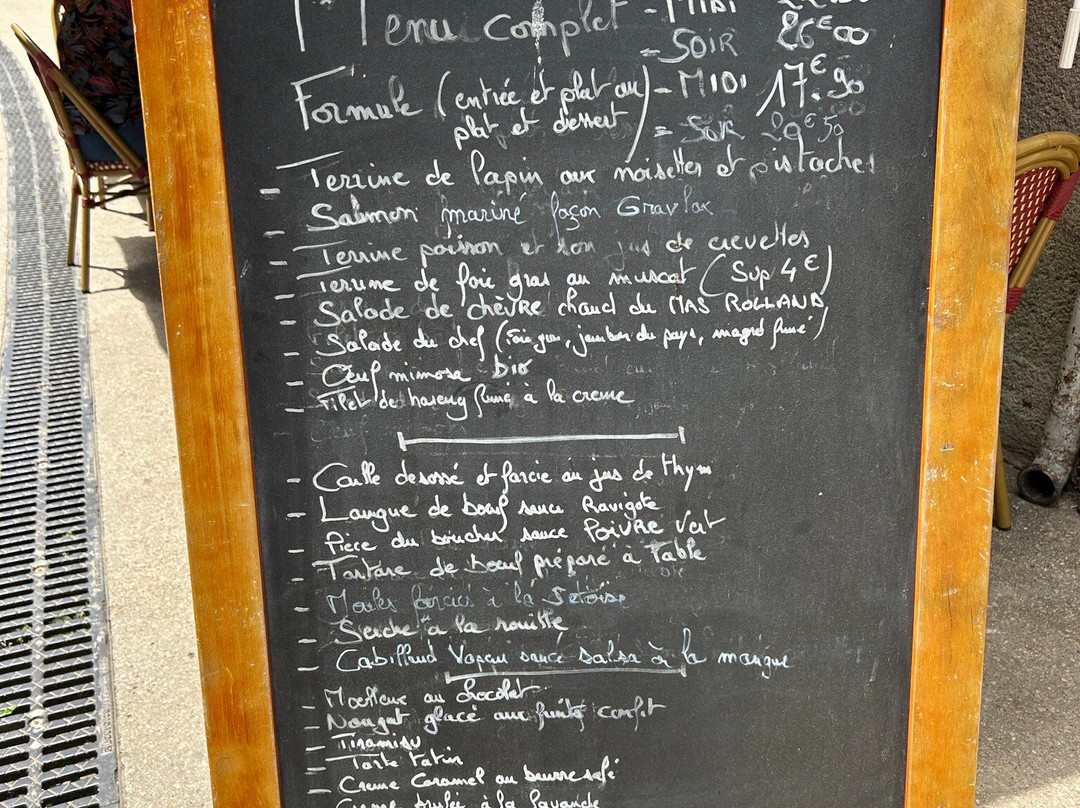 Menu complet - MIDI
= SOIR 26€00
Formule (entrée et plat ou - MIDI 17€90
plat et dessert) = SOIR
- Terrine de lapin aux noisettes et pistaches
Salmon mariné façon Gravlax
- Terrine poisson et son jus de crevettes
- Terrine de foie gras au muscat (Sup 4€)
- Salade de chèvre chaud du MAS ROLLAND
- Salade du chef (foie gras, jambon du pays, magret fumé)
- Œuf mimosa bio
- Filet de hareng fumé à la creme
- Caille desossé et farcie au jus de thym
- Langue de bœuf sauce Ravigote
- Pièce du boucher sauce POIVRE Vert
- Tartare de bœuf préparé à Table
- Moules farcies à la Setoise
- Seiche à la rouille
- Cabillaud Vapeur sauce salsa à la mangue
- Moelleux au chocolat
- Nougat glacé aux fruits confit
- Tiramisu
- Tarte tatin
- Creme Caramel au beurre salé
Creme brulée à la lavande